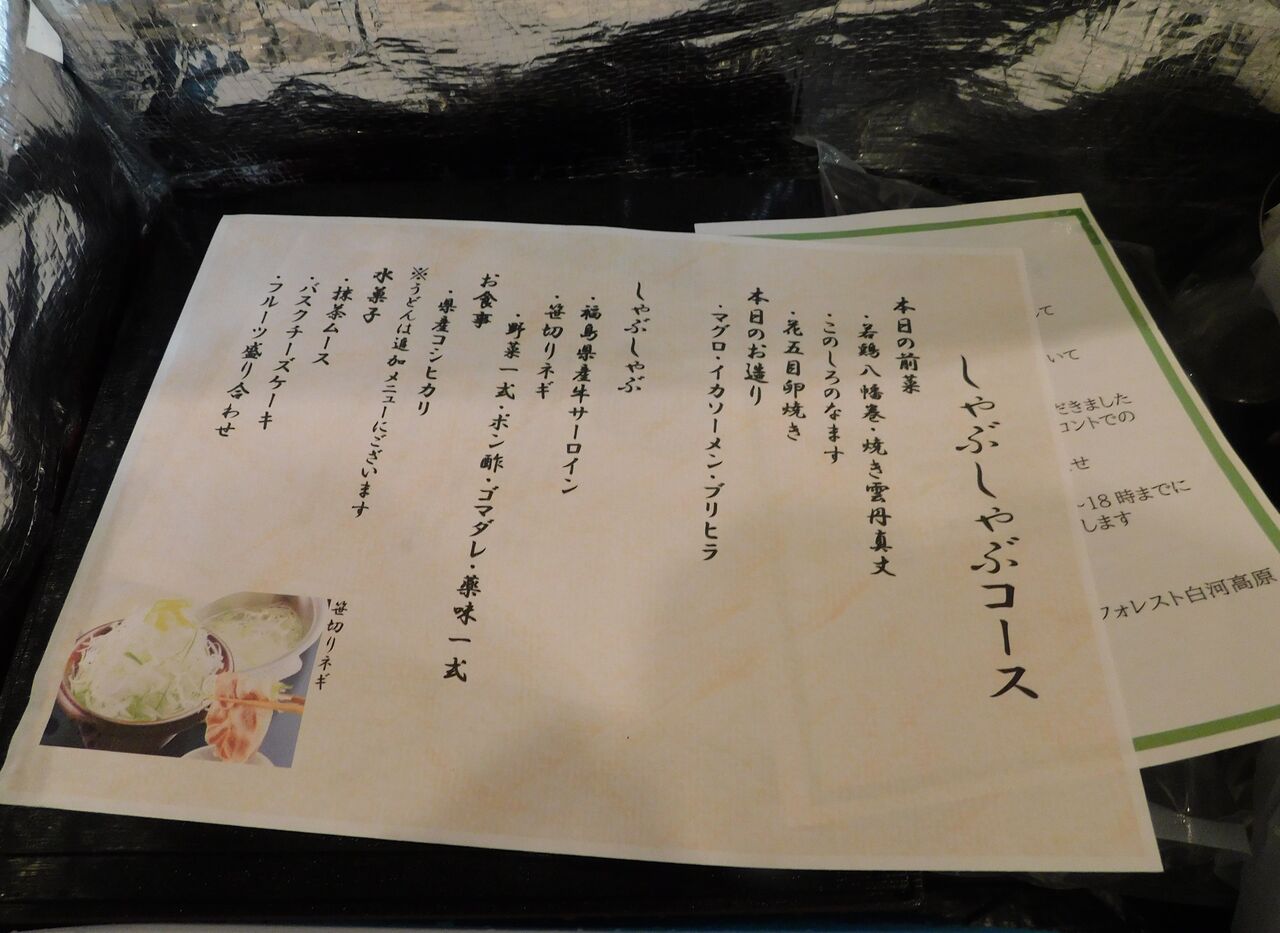 しゃぶしゃぶコース
本日の前菜
・若鶏八幡巻・焼き雲丹真丈
・このしろのなます
・花五目卵焼き
本日のお造り
・マグロ・イカソーメン・ブリヒラ
しゃぶしゃぶ
・福島県産牛サーロイン
・笹切りネギ
・野菜一式・ポン酢・ゴマダレ・薬味一式
お食事
・県産コシヒカリ
※うどんは追加メニューにございます
水菓子
・抹茶ムース
・バスクチーズケーキ
・フルーツ盛り合わせ
笹切りネギ
て
いて
だきました
コントでの
せ
~18時までに
します
フォレスト白河高原